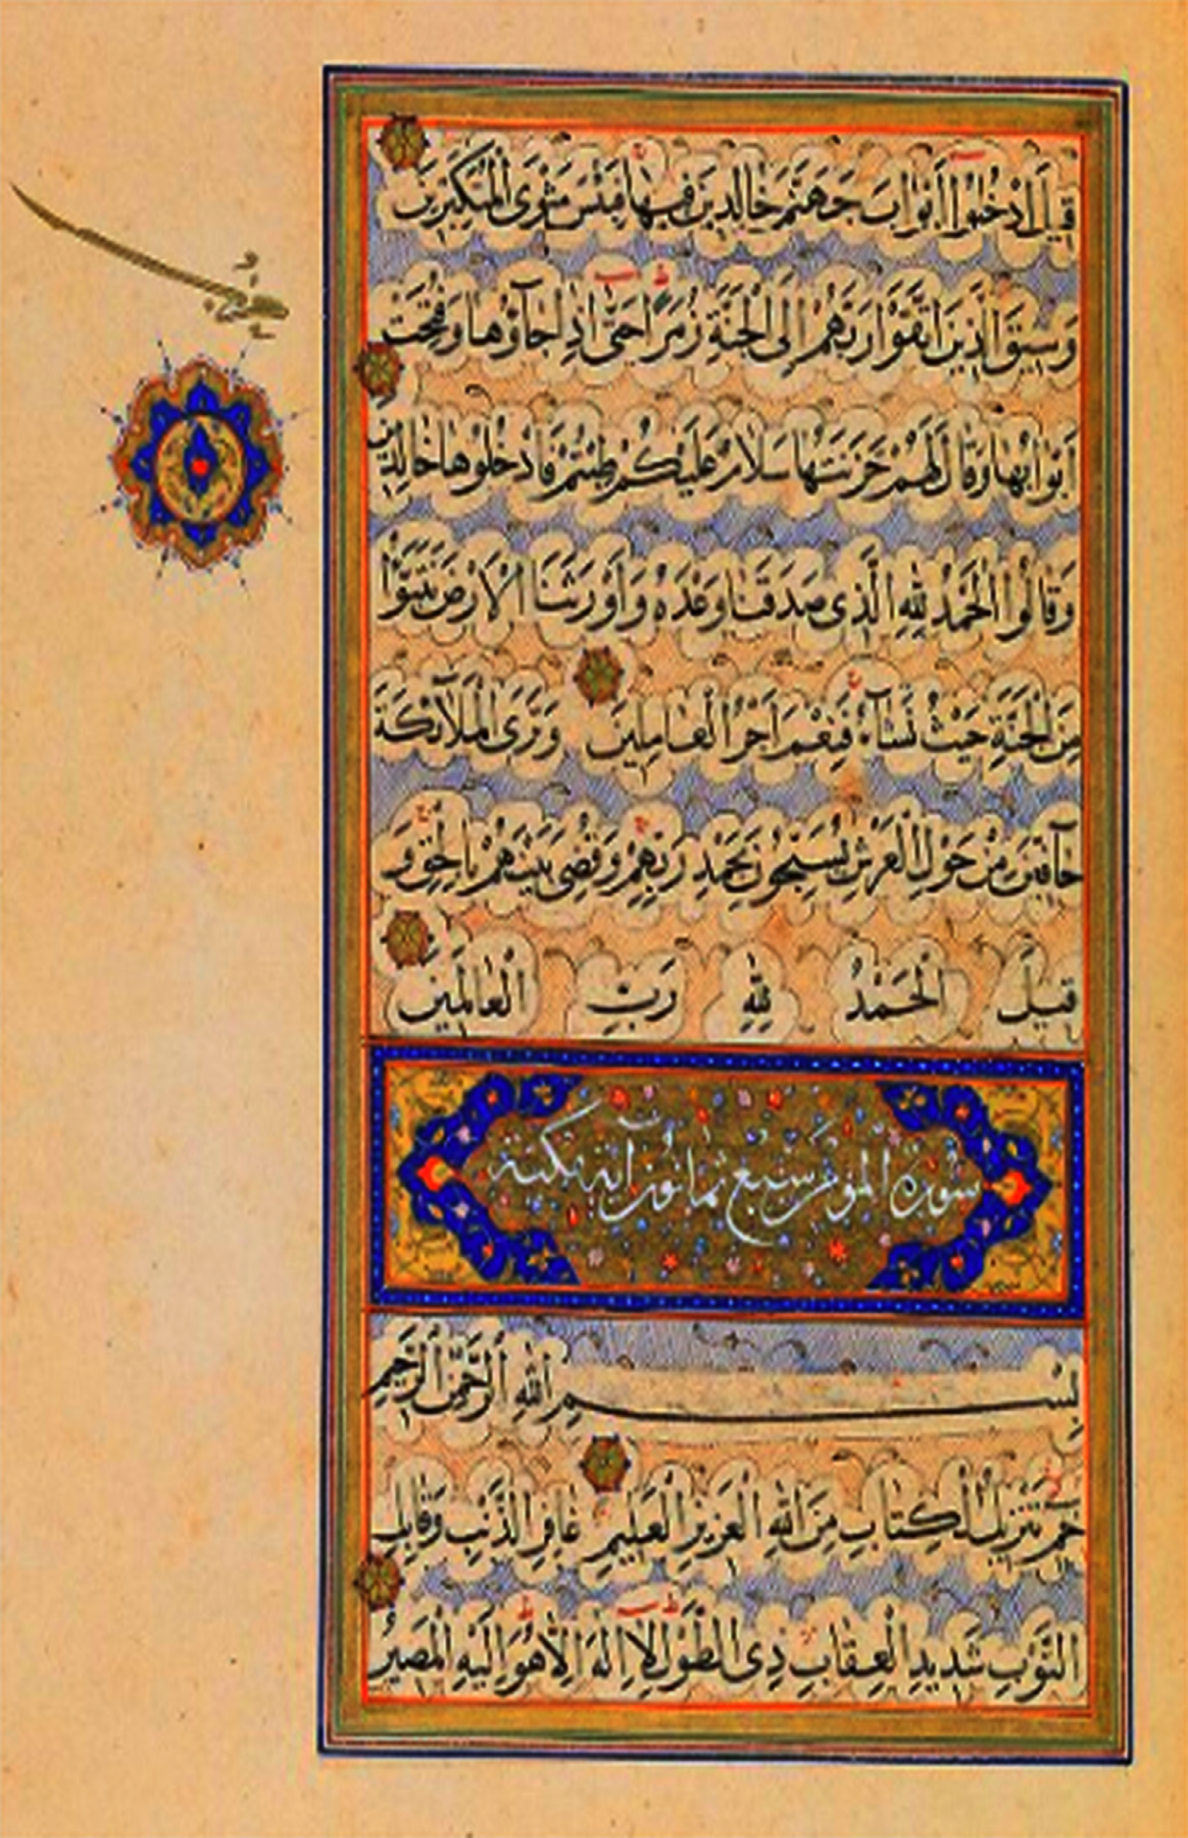 قِيلَ ادْخُلُوا أَبْوَابَ جَهَنَّمَ خَالِدِينَ فِيهَا فَبِئْسَ مَثْوَى الْمُتَكَبِّرِينَ
وَسِيقَ الَّذِينَ اتَّقَوْا رَبَّهُمْ إِلَى الْجَنَّةِ زُمَرًا حَتَّى إِذَا جَآؤُهَا وَفُتِحَتْ
أَبْوَابُهَا وَقَالَ لَهُمْ خَزَنَتُهَا سَلَامٌ عَلَيْكُمْ طِبْتُمْ فَادْخُلُوهَا خَالِدِينَ
وَقَالُوا الْحَمْدُ لِلَّهِ الَّذِى صَدَقَنَا وَعْدَهُ وَأَوْرَثَنَا الْأَرْضَ نَتَبَوَّأُ
مِنَ الْجَنَّةِ حَيْثُ نَشَآءُ فَنِعْمَ أَجْرُ الْعَامِلِينَ وَتَرَى الْمَلَآئِكَةَ
حَآفِّينَ مِنْ حَوْلِ الْعَرْشِ يُسَبِّحُونَ بِحَمْدِ رَبِّهِمْ وَقُضِىَ بَيْنَهُمْ بِالْحَقِّ وَ
قِيلَ الْحَمْدُ لِلَّهِ رَبِّ الْعَالَمِينَ
سورة المؤمن سبع ثمانون آية مكية
بِسْمِ اللهِ الرَّحْمَنِ الرَّحِيمِ
حم تَنْزِيلُ الْكِتَابِ مِنَ اللهِ الْعَزِيزِ الْعَلِيمِ غَافِرِ الذَّنْبِ وَقَابِلِ
التَّوْبِ شَدِيدِ الْعِقَابِ ذِى الطَّوْلِ لَا إِلَهَ إِلَّا هُوَ إِلَيْهِ الْمَصِيرُ